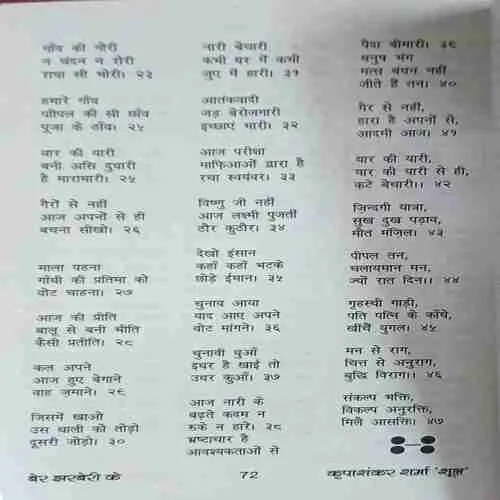 गाँव की गोरी
न चंदन न रोरी
राधा सी भोरी। २३
हमारे गाँव
पीपल की सी छाँव
पूजा के ठाँव। २४
यार की यारी
बनी असि दुधारी
है मारामारी। २५
गैरों से नहीं
आज अपनों से ही
बचना सीखो। २६
माला पहना
गाँधी की प्रतिमा को
वोट चाहना। २७
आज की प्रीति
बालू से बनी भीति
कैसी प्रतीति। २८
कल अपने
आज हुए बेगाने
वाह ज़माने। २९
जिसमें खाओ
उस थाली को तोड़ो
दूसरी जोड़ो। ३०
नारी बेचारी
कभी घर में कभी
जुए में हारी। ३१
आतंकवादी
जड़ बेरोजगारी
इच्छाएं भारी। ३२
आज परीक्षा
माफिआओं द्वारा है
रचा स्वयंवर। ३३
विष्णु जी नहीं
आज लक्ष्मी पुजतीं
ठौर कुठौर। ३४
देखो इंसान
कहाँ कहाँ भटके
छोड़े ईमान। ३५
चुनाव आया
याद आए अपने
वोट मांगने। ३६
चुनावी धुआँ
इधर है खाई तो
उधर कुआँ। ३७
आज नारी के
बढ़ते कदम न
रुके न हारे। ३८
भ्रष्टाचार है
आवश्यकताओं से
पैदा बीमारी। ३९
धनुष भंग
मत्स्य बेधन नहीं
जीते हैं तन। ४०
गैर से नहीं,
हारा है अपनों से,
आदमी आज। ४१
यार की यारी,
यार की यारी से ही,
कटे बेचारी।। ४२
ज़िन्दगी यात्रा,
सुख दुख पड़ाव,
मौत मंजिल। ४३
पीपल तन,
चलायमान मन,
ज्यों रात दिन।। ४४
गृहस्थी गाड़ी,
पति पत्नि के काँधे,
खींचें युगल। ४५
मन से राग,
चित्त से अनुराग,
बुद्धि विराग।। ४६
संकल्प भक्ति,
विकल्प अनुरक्ति,
मिलै आसक्ति। ४७
बेर झरबेरी के 72 कृपाशंकर शर्मा 'शूल'